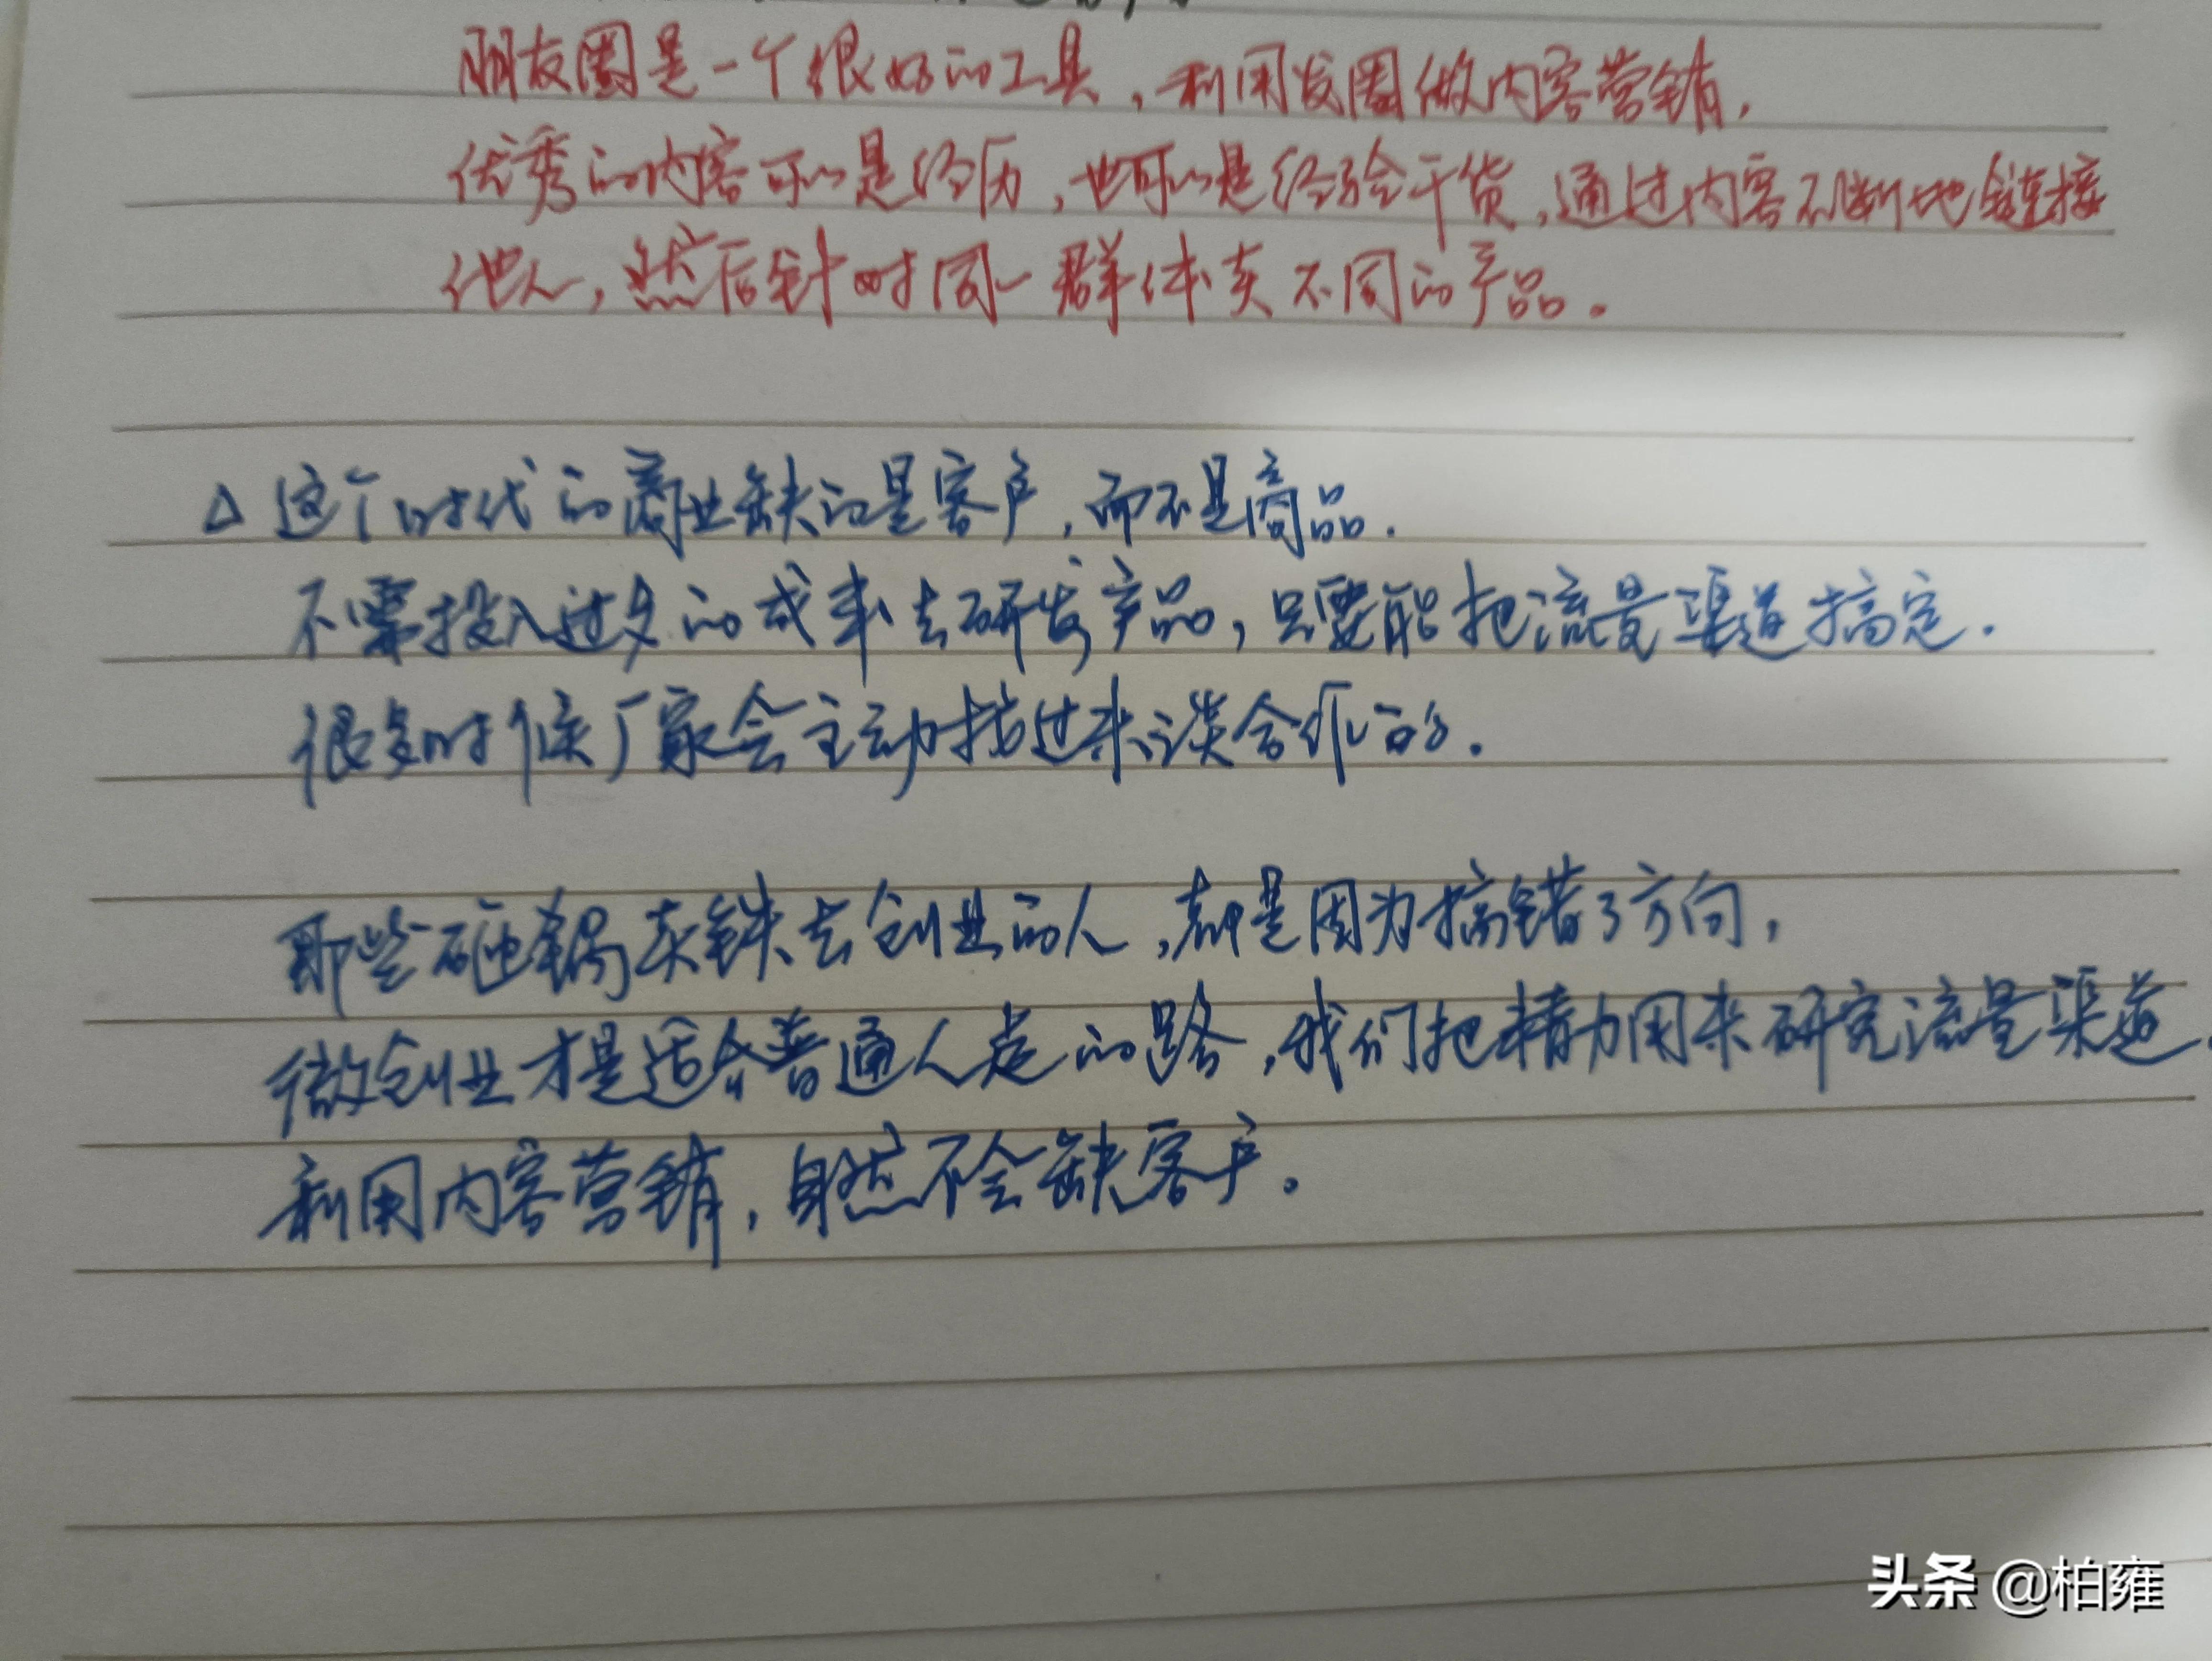 朋友圈是一个很好的工具，利用友圈做内容营销，
优秀的内容可以是经历，也可以是经验干货，通过内容不断地链接
他人，然后针对同一群体卖不同的产品。
△ 这个时代的商业缺的是客户，而不是商品.
不需投入过多的成本去研发产品，只要能把流量渠道搞定.
很多时候厂家会主动找过来谈合作的.
那些砸锅卖铁去创业的人，都是因为搞错了方向，
微创业才是适合普通人走的路，我们把精力用来研究流量渠道，
利用内容营销，自然不会缺客户。
头条 @柏雍